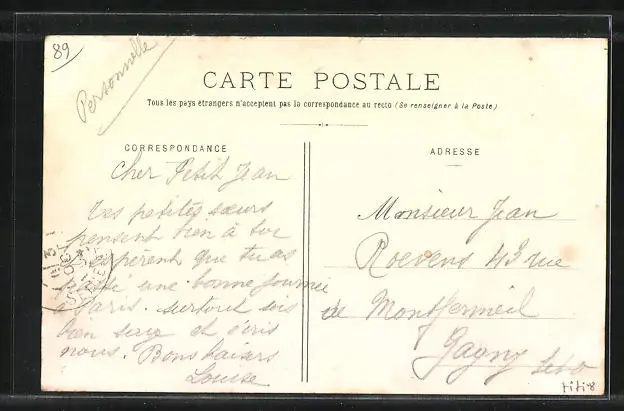 89
Personnelle
CARTE POSTALE
Tous les pays étrangers n'acceptent pas la correspondance au recto (Se renseigner à la Poste)
CORRESPONDANCE
Cher Petit Jean
Tes petites sœurs
pensent bien à toi
espèrent que tu as
une bonne journée
à Paris. surtout sois
bien sage et écris
nous. Bons baisers
Louise
ADRESSE
Monsieur Jean
Roevens 43 rue
de Montfermeil
Gagny